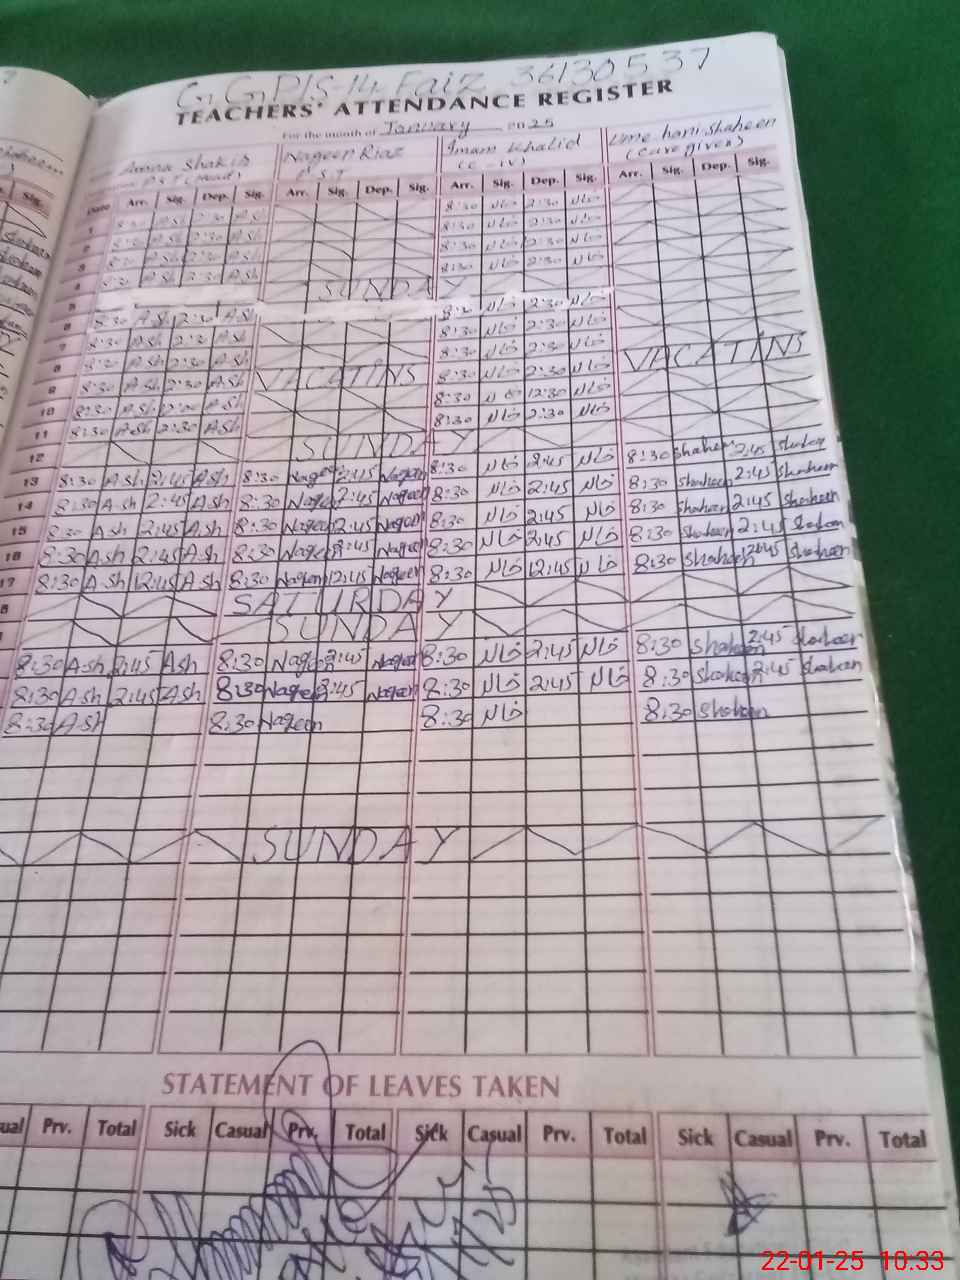 G.G.P/S-14 Faiz 36130537
TEACHERS' ATTENDANCE REGISTER
For the month of January 2025
Amna Shakib Nageen Riaz Imam Khalid Ume hani Shaheen
PST (Head) PST (C-IV) (Care giver)
Date Arr. Sig. Dep. Sig. Arr. Sig. Dep. Sig. Arr. Sig. Dep. Sig. Arr. Sig. Dep. Sig.
1 8:30 A.Sh 2:30 A.Sh 8:30 خالد 2:30 خالد
2 8:30 A.Sh 2:30 A.Sh 8:30 خالد 2:30 خالد
3 8:30 A.Sh 2:30 A.Sh 8:30 خالد 2:30 خالد
4 8:30 A.Sh 2:30 A.Sh 8:30 خالد 2:30 خالد
5 SUNDAY
6 8:30 A.Sh 2:30 A.Sh 8:30 خالد 2:30 خالد
7 8:30 A.Sh 2:30 A.Sh 8:30 خالد 2:30 خالد
8 8:30 A.Sh 2:30 A.Sh 8:30 خالد 2:30 خالد VACATINS
9 8:30 A.Sh 2:30 A.Sh VACATINS 8:30 خالد 2:30 خالد
10 8:30 A.Sh 8:30 خالد 12:30 خالد
11 8:30 A.Sh 2:30 A.Sh 8:30 خالد 2:30 خالد
12 SUNDAY
13 8:30 A.Sh 2:45 A.Sh 8:30 Nageen 2:45 Nageen 8:30 خالد 2:45 خالد 8:30 Shaheen 2:45 Shaheen
14 8:30 A.Sh 2:45 A.Sh 8:30 Nageen 2:45 Nageen 8:30 خالد 2:45 خالد 8:30 Shaheen 2:45 Shaheen
15 8:30 A.Sh 2:45 A.Sh 8:30 Nageen 2:45 Nageen 8:30 خالد 2:45 خالد 8:30 Shaheen 2:45 Shaheen
16 8:30 A.Sh 2:45 A.Sh 8:30 Nageen 2:45 Nageen 8:30 خالد 2:45 خالد 8:30 Shaheen 2:45 Shaheen
17 8:30 A.Sh 12:45 A.Sh 8:30 Nageen 12:45 Nageen 8:30 خالد 12:45 خالد 8:30 Shaheen Shaheen
8 SATURDAY
SUNDAY
8:30 A.Sh 2:45 A.Sh 8:30 Nageen 2:45 Nageen 8:30 خالد 2:45 خالد 8:30 Shaheen 2:45 Shaheen
8:30 A.Sh 2:45 A.Sh 8:30 Nageen 2:45 Nageen 8:30 خالد 2:45 خالد 8:30 Shaheen 2:45 Shaheen
8:30 A.Sh 8:30 Nageen 8:30 خالد 8:30 Shaheen
SUNDAY
STATEMENT OF LEAVES TAKEN
ual Prv. Total Sick Casual Prv. Total Sick Casual Prv. Total Sick Casual Prv. Total
22-01-25 10:33